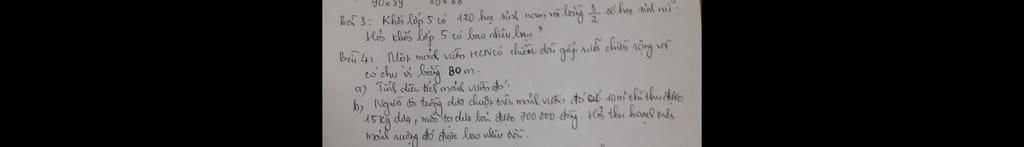 90x89 89x88
Bài 3: Khối lớp 5 có 120 học sinh nam và bằng 3/2 số học sinh nữ
Hỏi khối lớp 5 có bao nhiêu bạn?
Bài 4: Một mảnh vườn HCN có chiều dài gấp rưỡi chiều rộng và
có chu vi bằng 80m.
a) Tính diện tích mảnh vườn đó.
b) Người ta trồng dưa chuột trên mảnh vườn đó cứ 10m² thì thu được
15kg dưa, mỗi tạ dưa bán được 700 000 đồng. Hỏi thu hoạch trên
mảnh ruộng đó được bao nhiêu tiền.